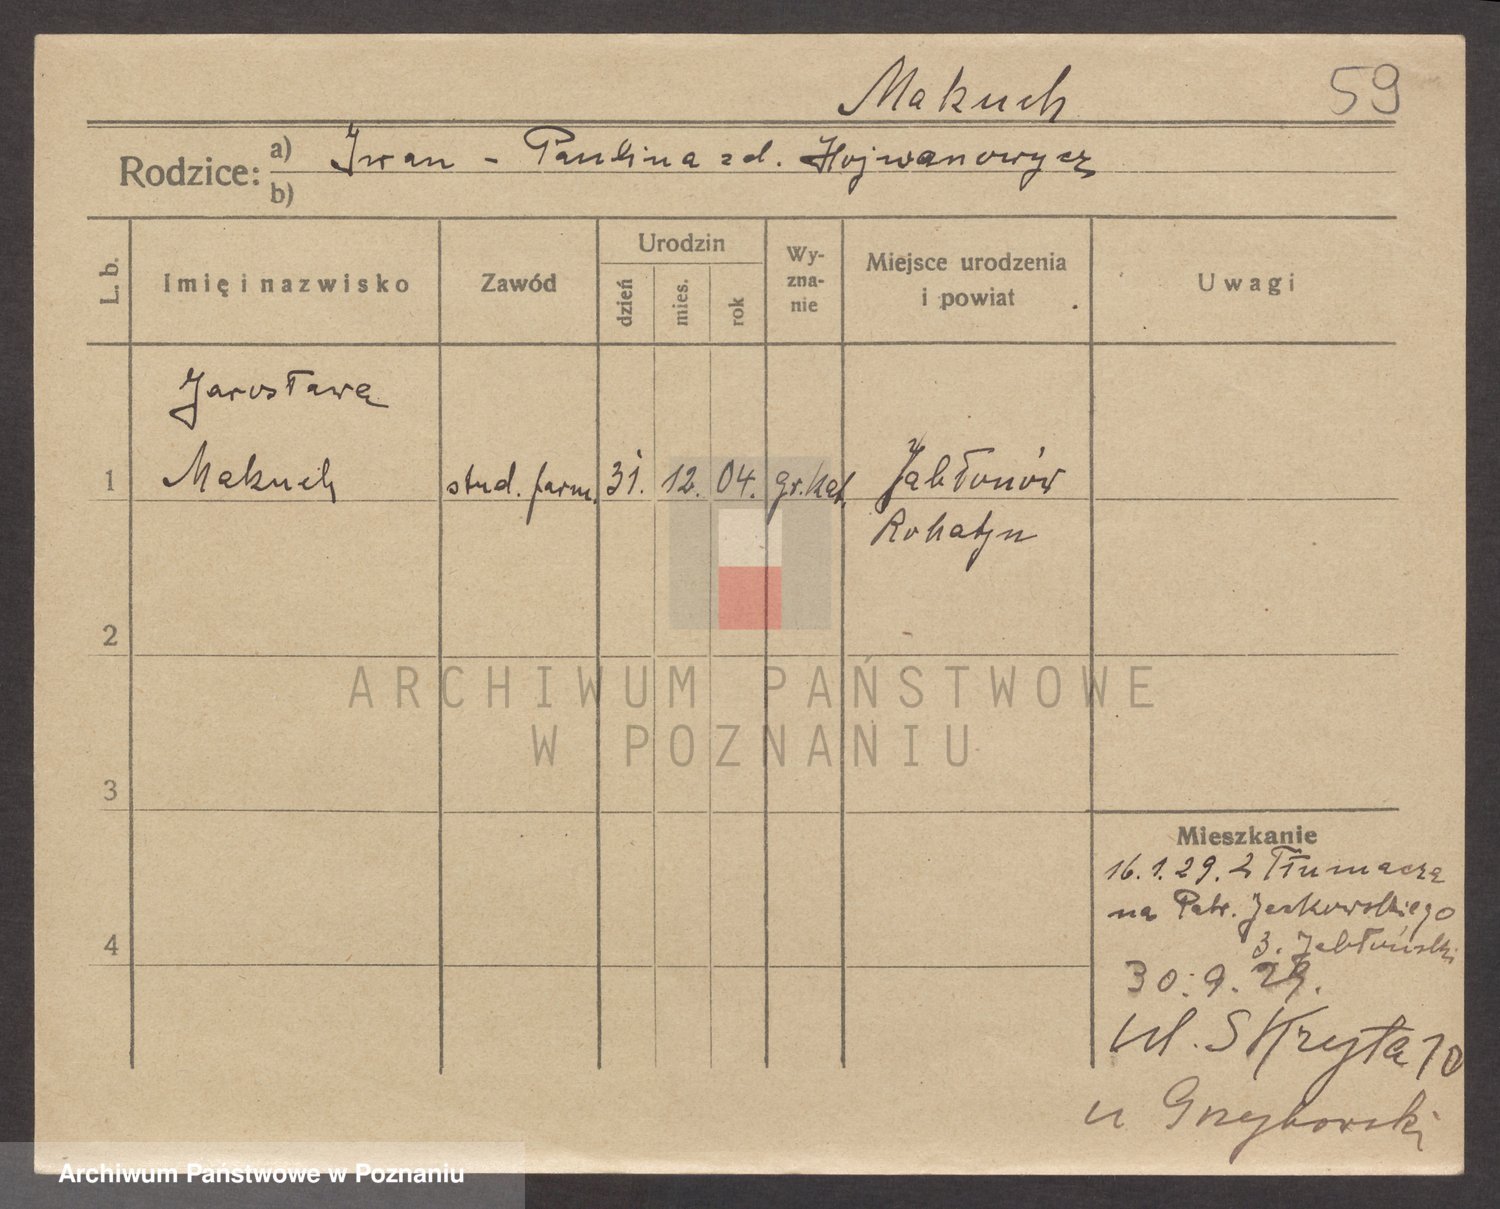 Makuch
59
Rodzice:
a) Iwan - Paulina zd. Hojwanowycz
b)
L. b.
Imię i nazwisko
Zawód
Urodzin
dzień
mies.
rok
Wy-
zna-
nie
Miejsce urodzenia
i powiat
Uwagi
Jarosława
1 Makuch stud. farm. 31. 12. 04. gr. kat. Jabłonów
Rohatyn
2
3
4
Mieszkanie
16.1.29. z Tłumacza
na Patr. Jackowskiego
3. Jabłoński
30.9.29.
ul. Skryta 10
u Grzyborski
ARCHIWUM PAŃSTWOWE
W POZNANIU
Archiwum Państwowe w Poznaniu